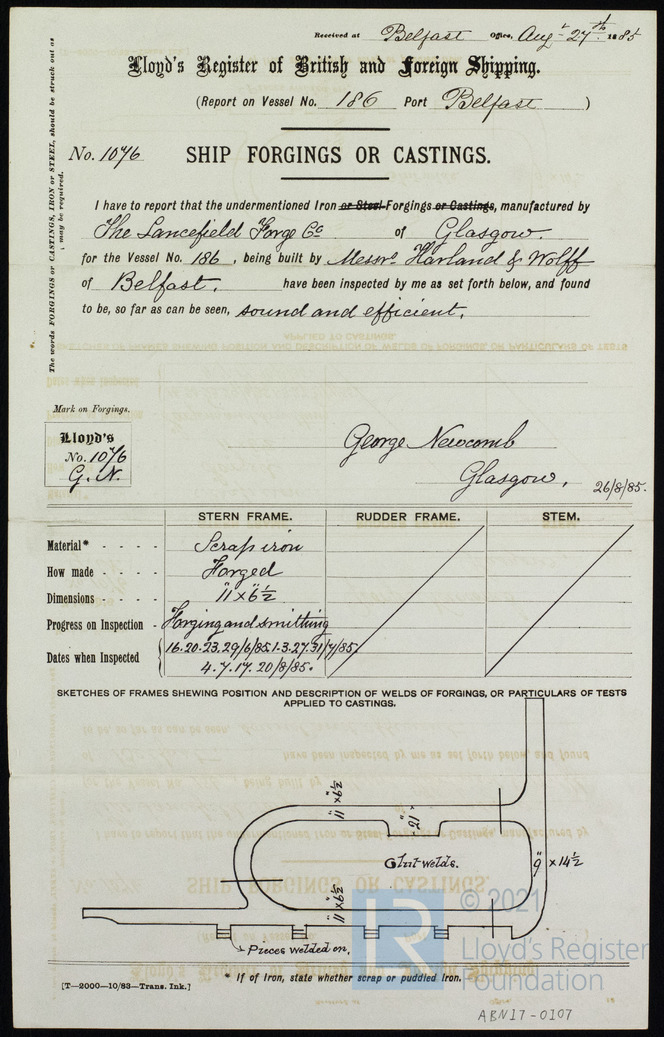 Received at Belfast Office, Augt 27th 1885
Lloyd's Register of British and Foreign Shipping.
(Report on Vessel No. 186 Port Belfast )
The words FORGINGS or CASTINGS, IRON or STEEL, should be struck out as may be required.
No. 1076 SHIP FORGINGS OR CASTINGS.
I have to report that the undermentioned Iron or Steel Forgings or Castings, manufactured by
The Lancefield Forge Co of Glasgow.
for the Vessel No. 186, being built by Messrs Harland & Wolff
of Belfast. have been inspected by me as set forth below, and found
to be, so far as can be seen, sound and efficient.
Mark on Forgings.
Lloyd's
No. 1076
G. N.
George Newcomb
Glasgow, 26/8/85.
STERN FRAME. RUDDER FRAME. STEM.
Material* - - - - Scrap iron
How made - - - - Forged
Dimensions - - - - 11" x 6½"
Progress on Inspection - Forging and smithing
Dates when Inspected { 16.20.23.29/6/85.1.3.27.31/7/85
4.7.17.20/8/85.
SKETCHES OF FRAMES SHEWING POSITION AND DESCRIPTION OF WELDS OF FORGINGS, OR PARTICULARS OF TESTS
APPLIED TO CASTINGS.
11" x 6½
Glut welds.
9" x 14½
11" x 6½
Pieces welded on.
* If of Iron, state whether scrap or puddled Iron.
[T—2000—10/83—Trans. Ink.]
LR
© 2021
Lloyd's Register
Foundation
ABN17-0107